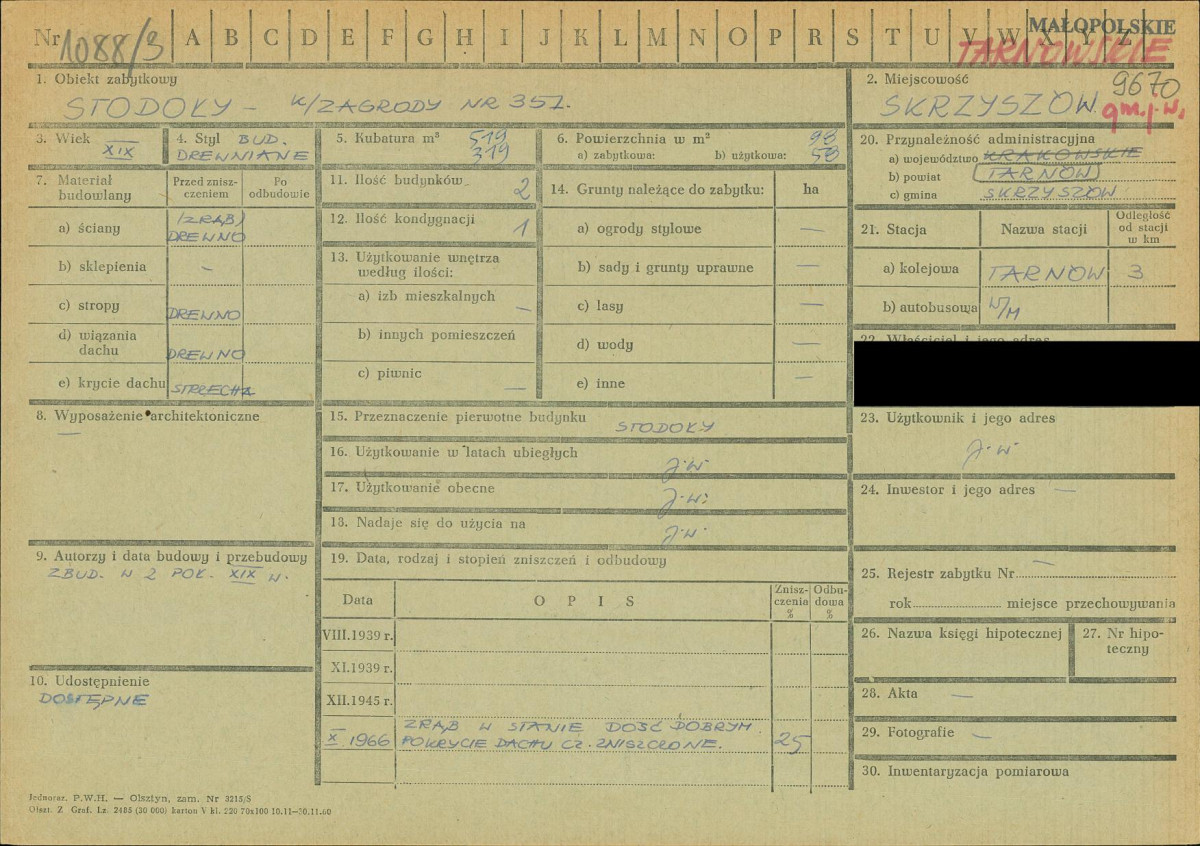 Nr 1088/3 A B C D E F G H I J K L M N O P R S T U V W X Y Z
MAŁOPOLSKIE
TARNOWSKIE
1. Obiekt zabytkowy
STODOŁY – K/ZAGRODY NR 351.
2. Miejscowość
9670
SKRZYSZÓW.
gm. j. w.
3. Wiek
XIX
4. Styl BUD.
DREWNIANE
5. Kubatura m³ 519
319
6. Powierzchnia w m²
a) zabytkowa: b) użytkowa: 98
58
20. Przynależność administracyjna
a) województwo KRAKOWSKIE
b) powiat TARNÓW
c) gmina SKRZYSZÓW
7. Materiał budowlany
Przed zniszczeniem
Po odbudowie
a) ściany /ZRĄB/
DREWNO
b) sklepienia –
c) stropy DREWNO
d) wiązania dachu DREWNO
e) krycie dachu STRZECHA
11. Ilość budynków 2
12. Ilość kondygnacji 1
13. Użytkowanie wnętrza według ilości:
a) izb mieszkalnych –
b) innych pomieszczeń
c) piwnic —
14. Grunty należące do zabytku: ha
a) ogrody stylowe —
b) sady i grunty uprawne —
c) lasy —
d) wody —
e) inne —
21. Stacja Nazwa stacji Odległość od stacji w km
a) kolejowa TARNÓW 3
b) autobusowa W/M
22. Właściciel i jego adres
8. Wyposażenie architektoniczne
—
15. Przeznaczenie pierwotne budynku
STODOŁY
16. Użytkowanie w latach ubiegłych
J.W.
17. Użytkowanie obecne
J.W.
18. Nadaje się do użycia na
J.W.
23. Użytkownik i jego adres
J.W.
24. Inwestor i jego adres —
9. Autorzy i data budowy i przebudowy
ZBUD. W 2 POŁ. XIX W.
19. Data, rodzaj i stopień zniszczeń i odbudowy
Data OPIS Zniszczenia % Odbudowa %
VIII.1939 r.
XI.1939 r.
XII.1945 r.
X 1966 ZRĄB W STANIE DOŚĆ DOBRYM
POKRYCIE DACHU CZ. ZNISZCZONE. 25
25. Rejestr zabytku Nr —
rok miejsce przechowywania
26. Nazwa księgi hipotecznej
27. Nr hipoteczny
10. Udostępnienie
DOSTĘPNE
28. Akta —
29. Fotografie —
30. Inwentaryzacja pomiarowa
Jednoraz. P.W.H. — Olsztyn, zam. Nr 3215/S
Olszt. Z Graf. Lz. 2485 (30 000) karton V kl. 220 70x100 10.11—30.11.60